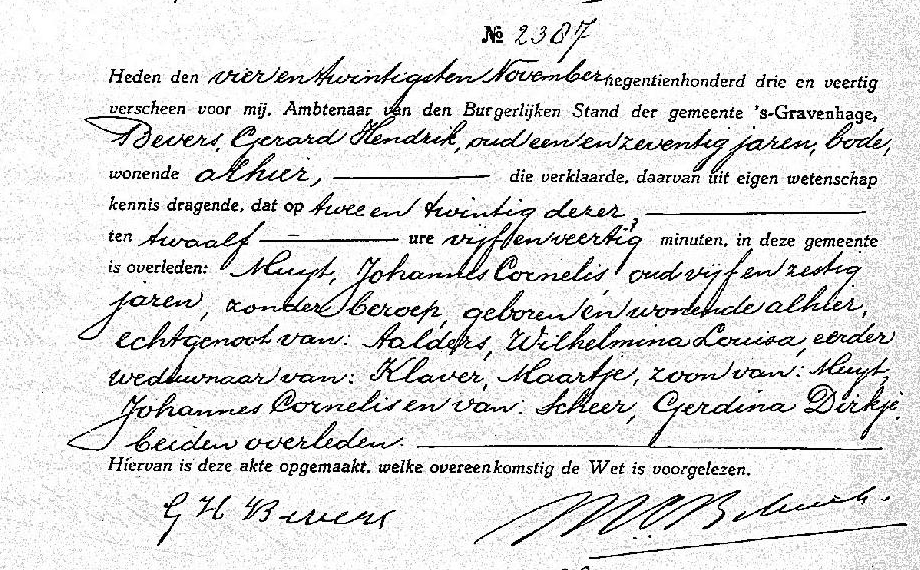 № 2387
Heden den vier en twintigsten November negentienhonderd drie en veertig
verscheen voor mij, Ambtenaar van den Burgerlijken Stand der gemeente 's-Gravenhage,
Bevers, Gerard Hendrik, oud een en zeventig jaren, bode,
wonende alhier, die verklaarde, daarvan uit eigen wetenschap
kennis dragende, dat op twee en twintig dezer,
ten twaalf ure vijf en veertig minuten, in deze gemeente
is overleden: Muyt, Johannes Cornelis, oud vijf en zestig
jaren, zonder beroep, geboren en wonende alhier,
echtgenoot van: Aalders, Wilhelmina Louisa, eerder
weduwnaar van: Klaver, Maartje, zoon van: Muyt,
Johannes Cornelis en van: Scheer, Gerdina Dirkje
beiden overleden.
Hiervan is deze akte opgemaakt, welke overeenkomstig de Wet is voorgelezen.
G H Bevers